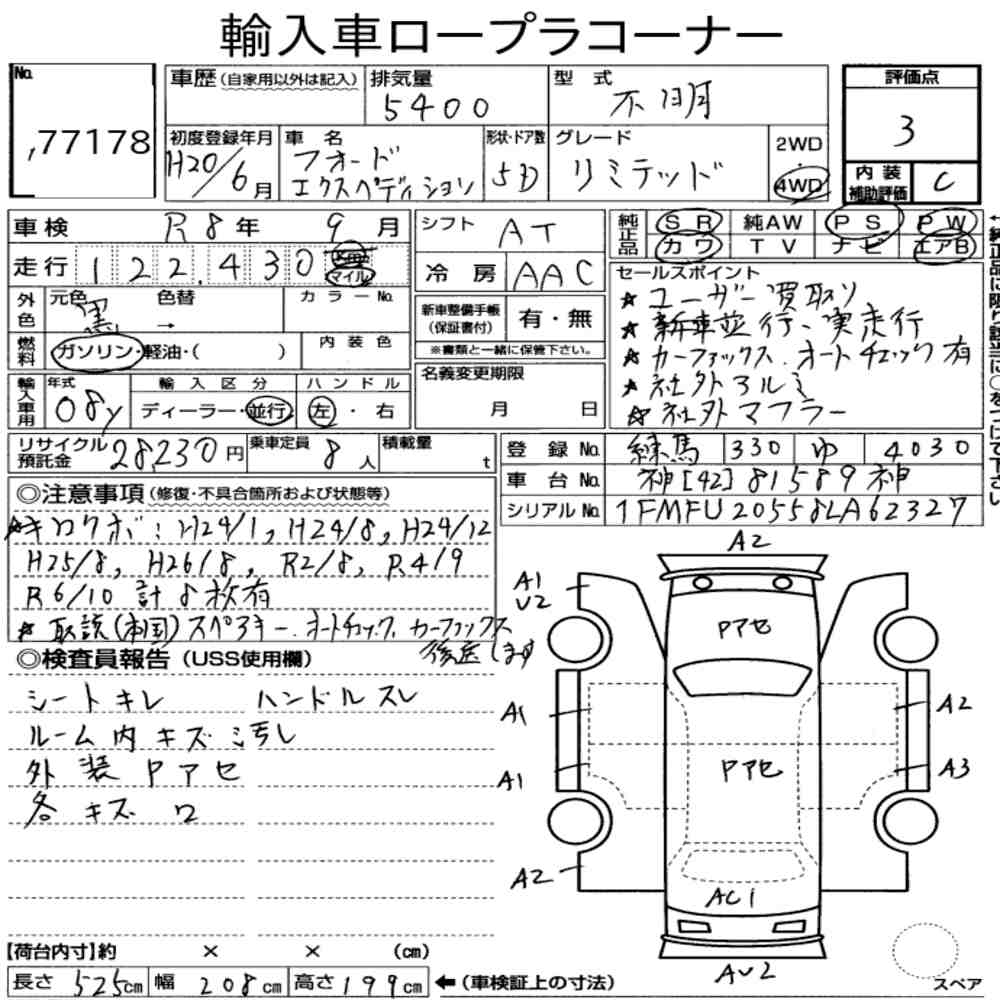 輸入車ロープラコーナー
No.
77178
車歴(自家用以外は記入)
排気量
5400
型式
不明
評価点
3
内装補助評価
C
初度登録年月
H20/6月
車名
フォード
エクスペディション
形状・ドア数
5D
グレード
リミテッド
2WD
・
4WD
車検 R8年 9月
走行 122,430 マイル
シフト AT
冷房 AAC
純正品 SR 純AW PS PW
カワ TV ナビ エアB
外色 元色 黒 → 色替 カラーNo.
燃料 ガソリン・軽油・( ) 内装色
新車整備手帳(保証書付) 有・無
※書類と一緒に保管下さい。
セールスポイント
★ ユーザー買取り
★ 新車並行、実走行
★ カーファックス.オートチェック有
★ 社外アルミ
★ 社外マフラー
←純正品に限り該当に○をつけて下さい
輸入車用 年式 08y
輸入区分
ディーラー・並行
ハンドル
左・右
名義変更期限
月 日
リサイクル預託金 28,230円
乗車定員 8人
積載量 t
登録No. 練馬 330 ゆ 4030
車台No. 神[42]81589神
シリアルNo. 1FMFU20558LA62327
◎注意事項(修復・不具合箇所および状態等)
★キロクボ:H24/1, H24/8, H24/12
H25/8, H26/8, R2/8, R4/9
R6/10 計8枚有
★ 取説(本国)スペアキー.オートチェック,カーファックス
後送します
◎検査員報告(USS使用欄)
シートキレ ハンドルスレ
ルーム内キズ汚し
外装Pアセ
各キズワ
A2
A1
U2
Pアセ
A1
A2
A1
Pアセ
A3
A2
AC1
AU2
スペア
【荷台内寸】約 × × (cm)
長さ 525cm 幅 208cm 高さ 199cm ←(車検証上の寸法)